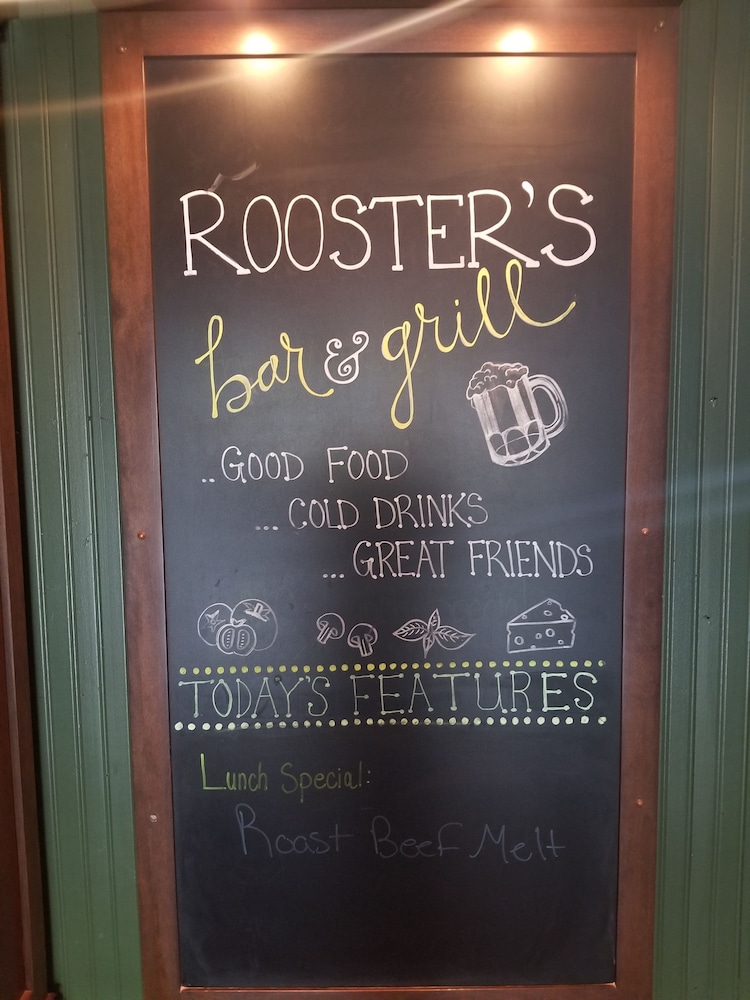 ROOSTER'S
bar & grill
..GOOD FOOD
...COLD DRINKS
...GREAT FRIENDS
TODAY'S FEATURES
Lunch Special:
Roast Beef Melt